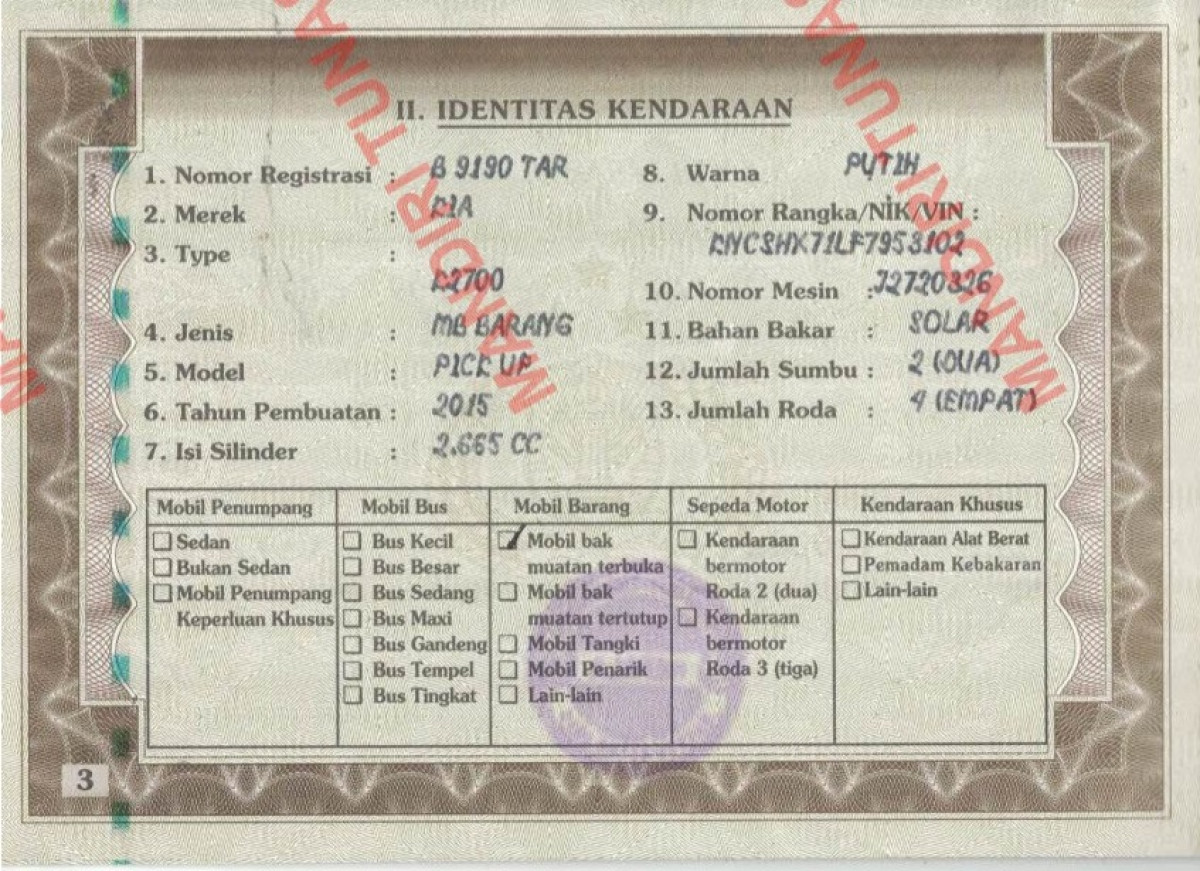 MANDIRI TUNAS
MANDIRI TUNAS
II. IDENTITAS KENDARAAN
1. Nomor Registrasi : B 9190 TAR
2. Merek : KIA
3. Type :
K2700
4. Jenis : MB BARANG
5. Model : PICK UP
6. Tahun Pembuatan : 2015
7. Isi Silinder : 2.665 CC
8. Warna PUTIH
9. Nomor Rangka/NIK/VIN :
KNCSHX71LF7953102
10. Nomor Mesin : J2720326
11. Bahan Bakar : SOLAR
12. Jumlah Sumbu : 2 (DUA)
13. Jumlah Roda : 4 (EMPAT)
Mobil Penumpang
Sedan
Bukan Sedan
Mobil Penumpang
Keperluan Khusus
Mobil Bus
Bus Kecil
Bus Besar
Bus Sedang
Bus Maxi
Bus Gandeng
Bus Tempel
Bus Tingkat
Mobil Barang
Mobil bak
muatan terbuka
Mobil bak
muatan tertutup
Mobil Tangki
Mobil Penarik
Lain-lain
Sepeda Motor
Kendaraan
bermotor
Roda 2 (dua)
Kendaraan
bermotor
Roda 3 (tiga)
Kendaraan Khusus
Kendaraan Alat Berat
Pemadam Kebakaran
Lain-lain
3